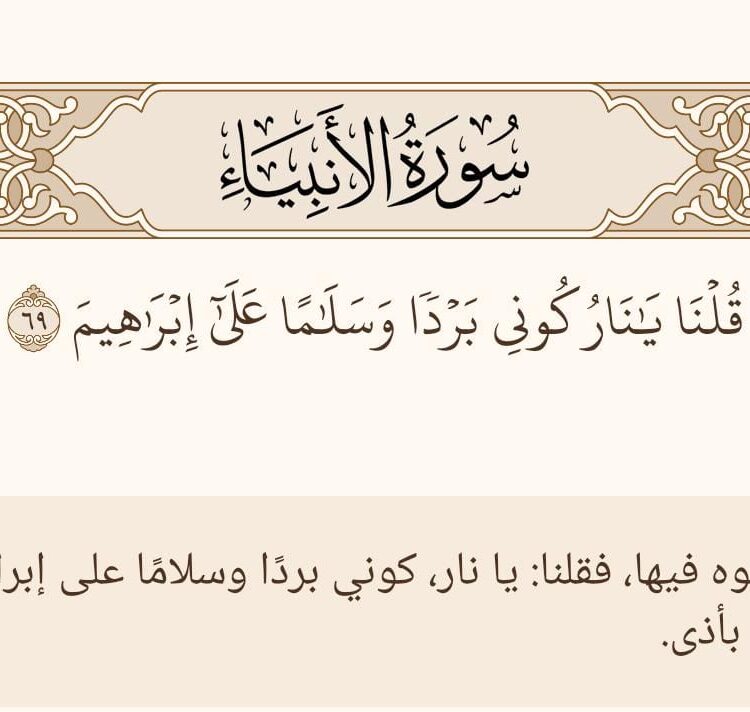 سُورَةُ الأَنبِيَاءِ
قُلْنَا يَـٰنَارُ كُونِى بَرْدًا وَسَلَـٰمًا عَلَىٰٓ إِبْرَٰهِيمَ ٦٩
فيها، فقلنا: يا نار، كوني بردًا وسلامًا على
بأذى.